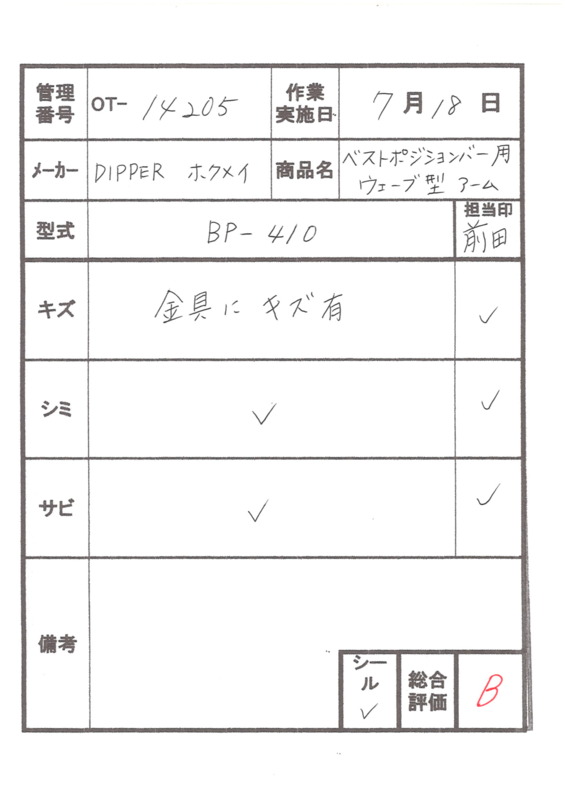 管理番号 OT-14205 作業実施日 7月18日
メーカー DIPPER ホクメイ 商品名 ベストポジションバー用
ウェーブ型 アーム
型式 BP-410 担当印
前田
キズ 金具にキズ有 ✓
シミ ✓ ✓
サビ ✓ ✓
備考
シール ✓ 総合評価 B